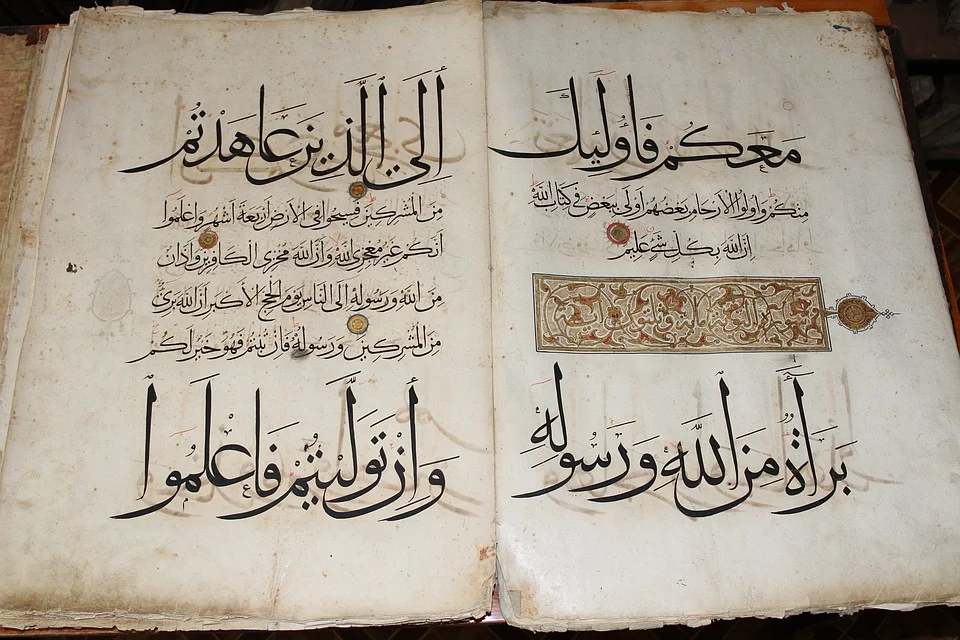 مَعَكُمْ فَأُولَٰئِكَ
مِنكُمْ وَأُولُوا الْأَرْحَامِ بَعْضُهُمْ أَوْلَىٰ بِبَعْضٍ فِي كِتَابِ اللَّهِ
إِنَّ اللَّهَ بِكُلِّ شَيْءٍ عَلِيمٌ
سورة التوبة مائة
بَرَاءَةٌ مِنَ اللَّهِ وَرَسُولِهِ
إِلَى الَّذِينَ عَاهَدْتُمْ
مِنَ الْمُشْرِكِينَ فَسِيحُوا فِي الْأَرْضِ أَرْبَعَةَ أَشْهُرٍ وَاعْلَمُوا
أَنَّكُمْ غَيْرُ مُعْجِزِي اللَّهِ وَأَنَّ اللَّهَ مُخْزِي الْكَافِرِينَ وَأَذَانٌ
مِنَ اللَّهِ وَرَسُولِهِ إِلَى النَّاسِ يَوْمَ الْحَجِّ الْأَكْبَرِ أَنَّ اللَّهَ بَرِيءٌ
مِنَ الْمُشْرِكِينَ وَرَسُولُهُ فَإِنْ تُبْتُمْ فَهُوَ خَيْرٌ لَكُمْ
وَإِنْ تَوَلَّيْتُمْ فَاعْلَمُوا